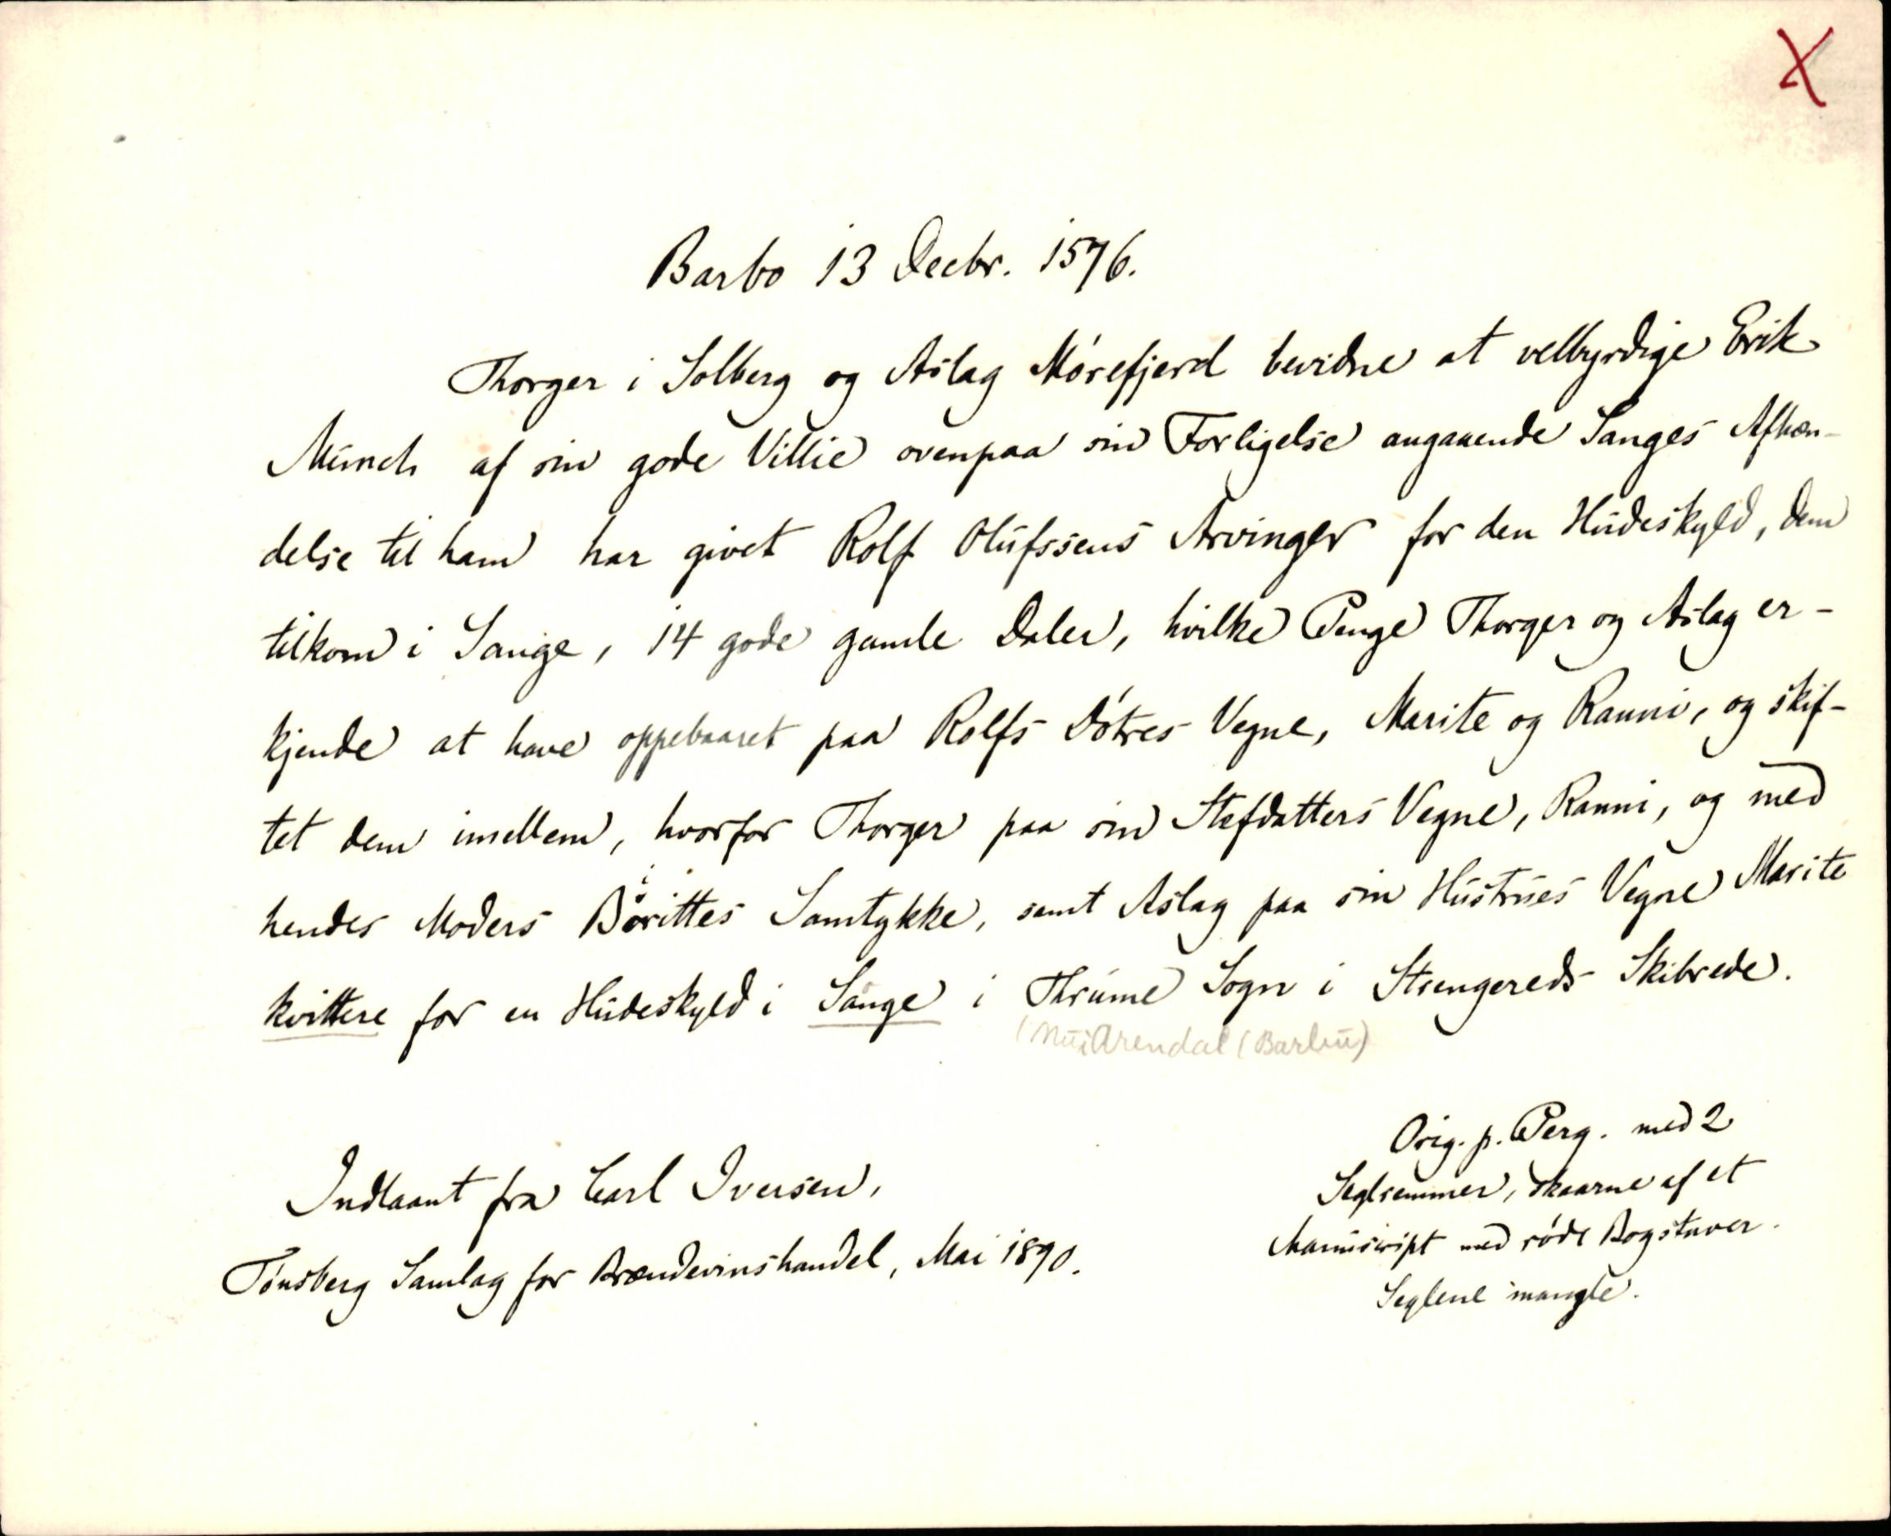 X
Barbo 13 Decbr. 1576.
Thorger i Solberg og Aslag Mørefjerd bevidne at velbyrdige Erik
Munch af sin gode Villie ovenpaa sin Forligelse angaaende Sanges Afhæn-
delse til ham har givet Rolf Olufssens Arvinger for den Hudeskyld, dem
tilkom i Sange, 14 gode gamle Daler, hvilke Penge Thorger og Aslag er-
kjende at have oppebaaret paa Rolfs Døtres Vegne, Marite og Ranni, og skif-
tet dem imellem, hvorfor Thorger paa sin Stefdatters Vegne, Ranni, og med
hendes Moders Börittes Samtykke, samt Aslag paa sin Hustrues Vegne Marite
kvittere for en Hudeskyld i Sange i Thrume Sogn i Strengereds Skibrede.
(Nu i Arendal (Barbu)
Orig. p. Perg. med 2
Seglremmer, skaarne af et
Manuscript med røde Bogstaver.
Seglene mangle.
Indlaant fra Carl Iversen,
Tønsberg Samlag for Brændevinshandel, Mai 1890.